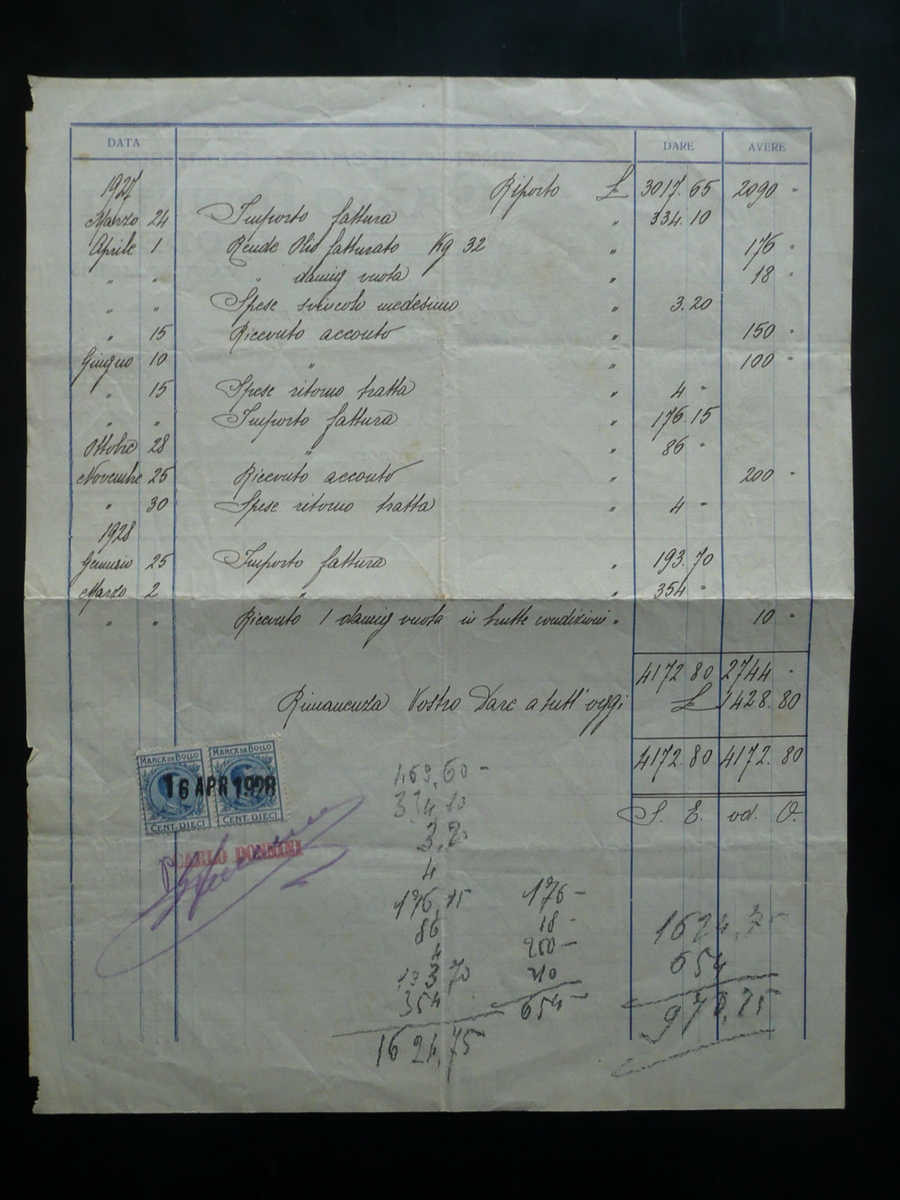 DATA DARE AVERE
1927 Riporto £ 3017.65 2090 "
Marzo 24 Importo fattura " 334.10
Aprile 1 Rende Olio fatturato Kg 32 " 176 "
" " " damig vuota " 18 "
" " Spese svincolo medesimo " 3.20
" 15 Ricevuto acconto " 150 "
Giugno 10 " " 100 "
" 15 Spese ritorno tratta " 4 "
" " Importo fattura " 176.15
Ottobre 28 " " 86 "
Novembre 25 Ricevuto acconto " 200 "
" 30 Spese ritorno tratta " 4 "
1928
Gennaio 25 Importo fattura " 193.70
Marzo 2 " " 354 "
" " Ricevuto 1 damig vuota in brutte condizioni " 10 "
4172 80 2744 "
Rimanenza Vostro Dare a tutt' oggi £ 1428.80
4172.80 4172.80
S. E. od. O.
MARCA DA BOLLO MARCA DA BOLLO
16 APR 1928
CENT. DIECI CENT. DIECI
CARLO
469,60 -
334,10
3,20
4
176,15 176 -
86 18 -
4
193 70
354 654 -
1624,75
1624,75
654
970,75